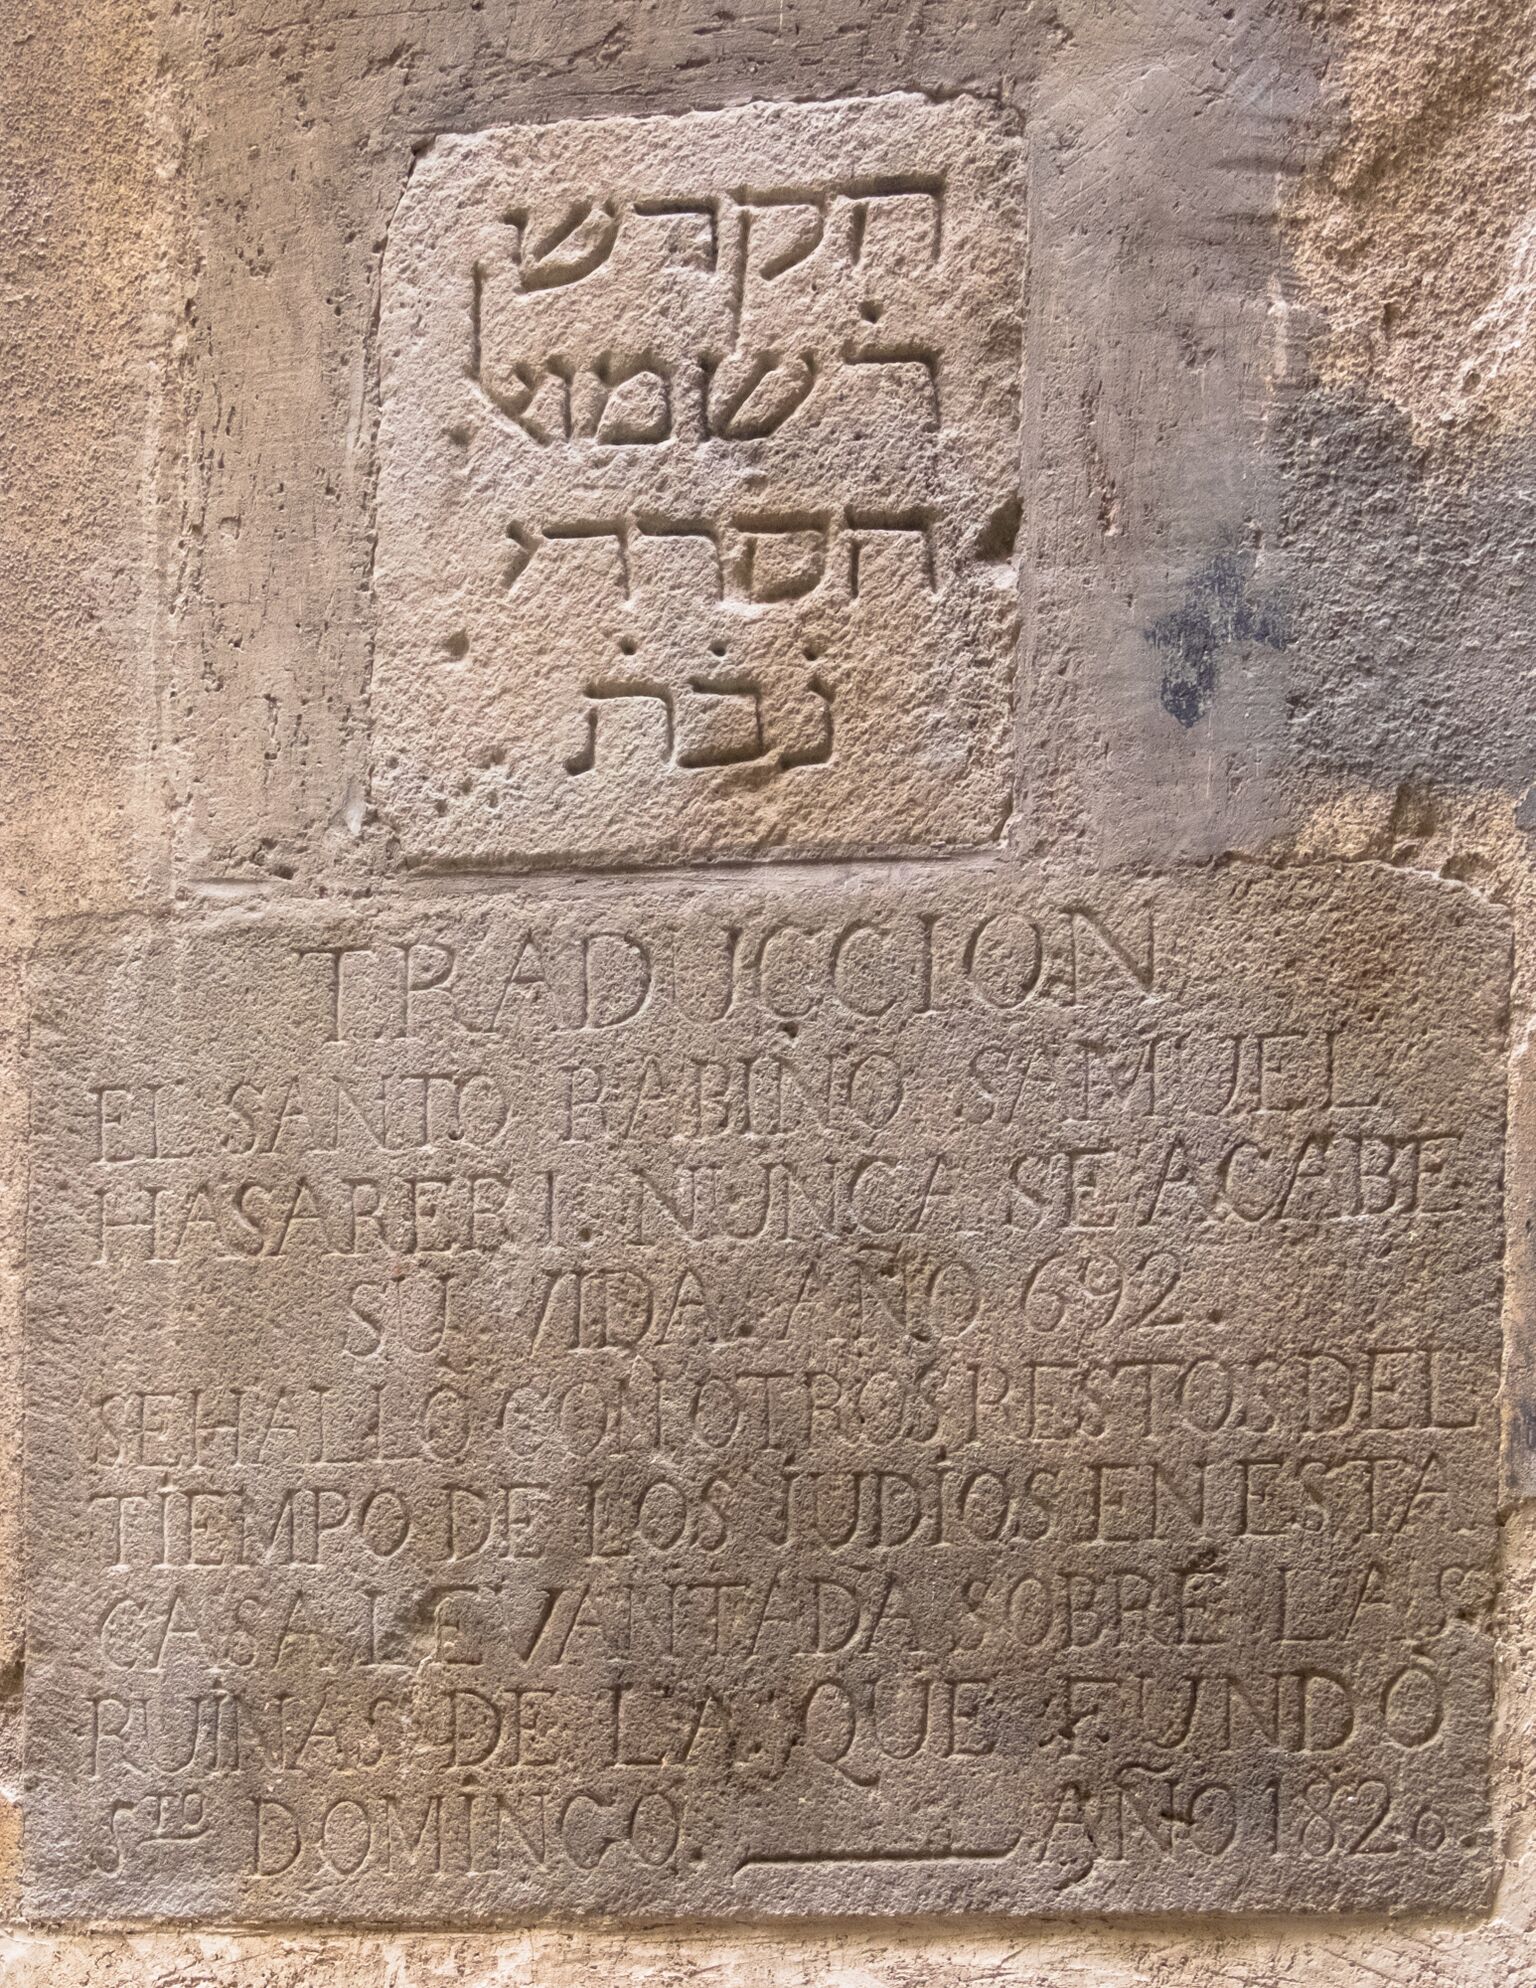 הקדש
ר̇ שמואל
הסרדי
נ̇ב̇ת̇
TRADUCCION
EL SANTO RABINO SAMUEL
HASARERI. NUNCA SE ACABE
SU VIDA. AÑO 692.
SE HALLO CON OTROS RESTOS DEL
TIEMPO DE LOS JUDIOS EN ESTA
CASA LEVANTADA SOBRE LAS
RUINAS DE LA QUE FUNDÓ
STO DOMINGO. AÑO 1820